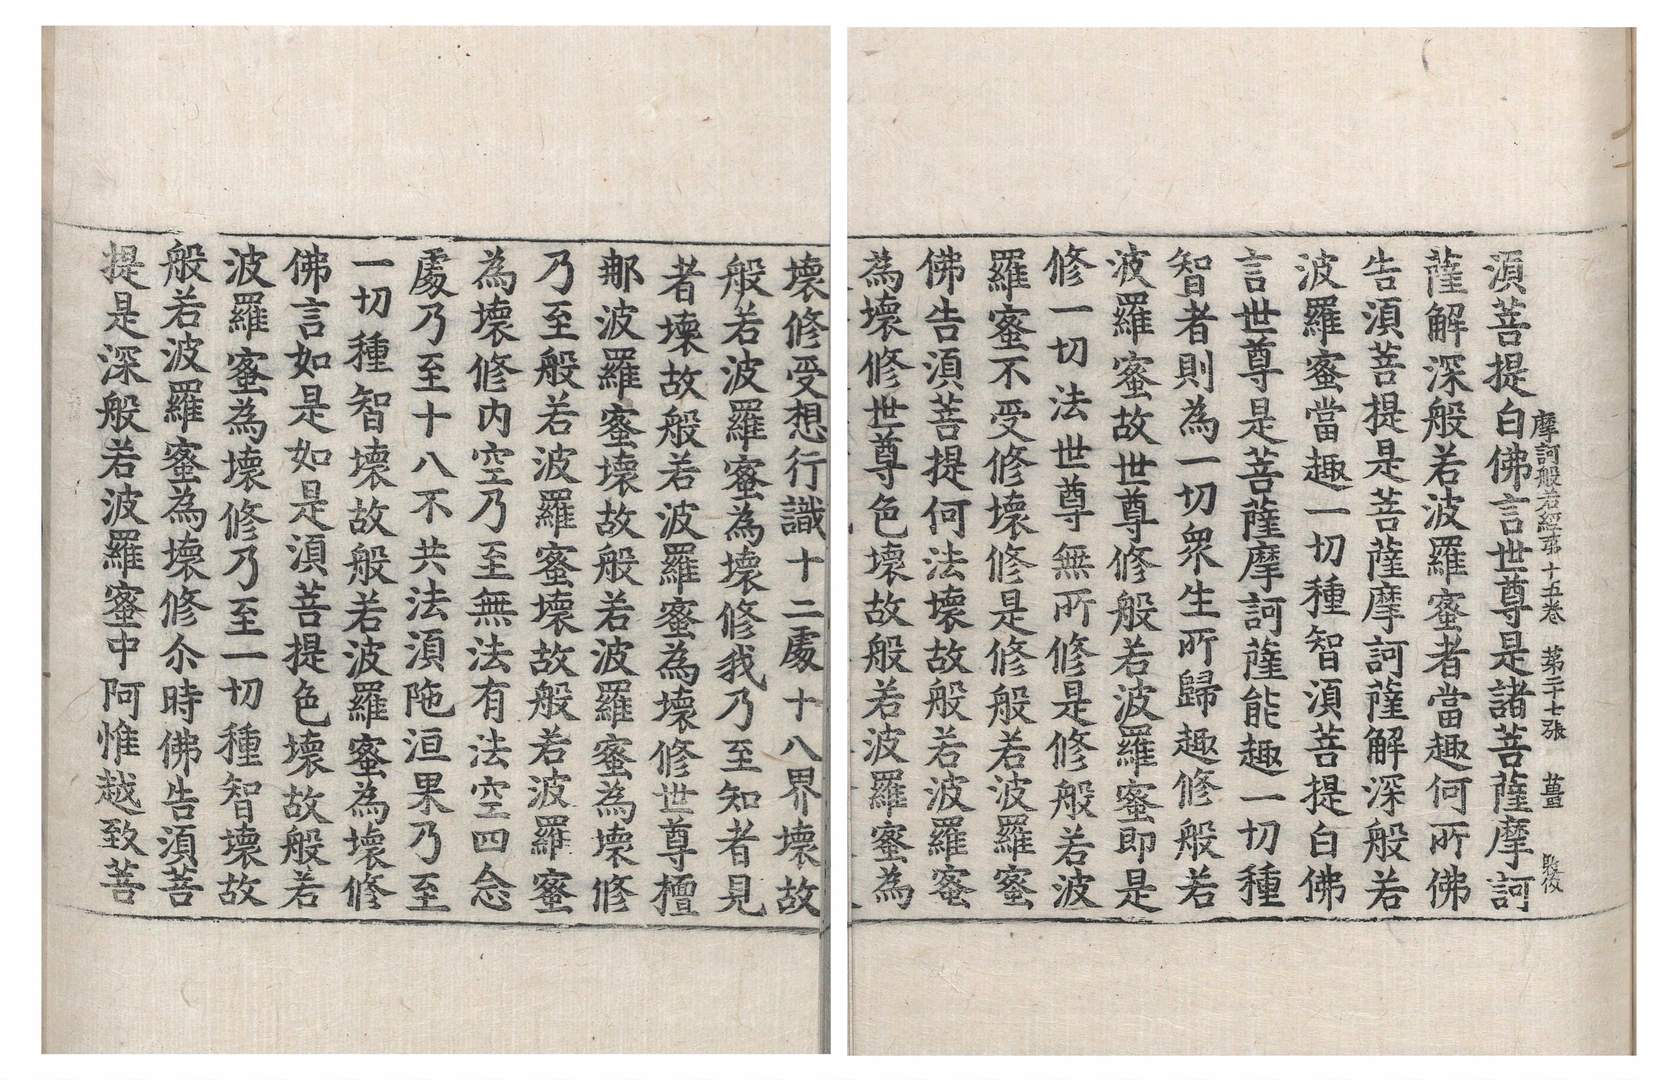 摩訶般若經第十五卷 第二十七張 薑
須菩提白佛言世尊是諸菩薩摩訶
薩解深般若波羅蜜者當趣何所佛
告須菩提是菩薩摩訶薩解深般若
波羅蜜當趣一切種智須菩提白佛
言世尊是菩薩摩訶薩能趣一切種
智者則為一切衆生所歸趣修般若
波羅蜜故世尊修般若波羅蜜即是
修一切法世尊無所修是修般若波
羅蜜不受修壞修是修般若波羅蜜
佛告須菩提何法壞故般若波羅蜜
為壞修世尊色壞故般若波羅蜜為
壞修受想行識十二處十八界壞故
般若波羅蜜為壞修我乃至知者見
者壞故般若波羅蜜為壞修世尊檀
那波羅蜜壞故般若波羅蜜為壞修
乃至般若波羅蜜壞故般若波羅蜜
為壞修内空乃至無法有法空四念
處乃至十八不共法須陁洹果乃至
一切種智壞故般若波羅蜜為壞修
佛言如是如是須菩提色壞故般若
波羅蜜為壞修乃至一切種智壞故
般若波羅蜜為壞修尒時佛告須菩
提是深般若波羅蜜中阿惟越致菩